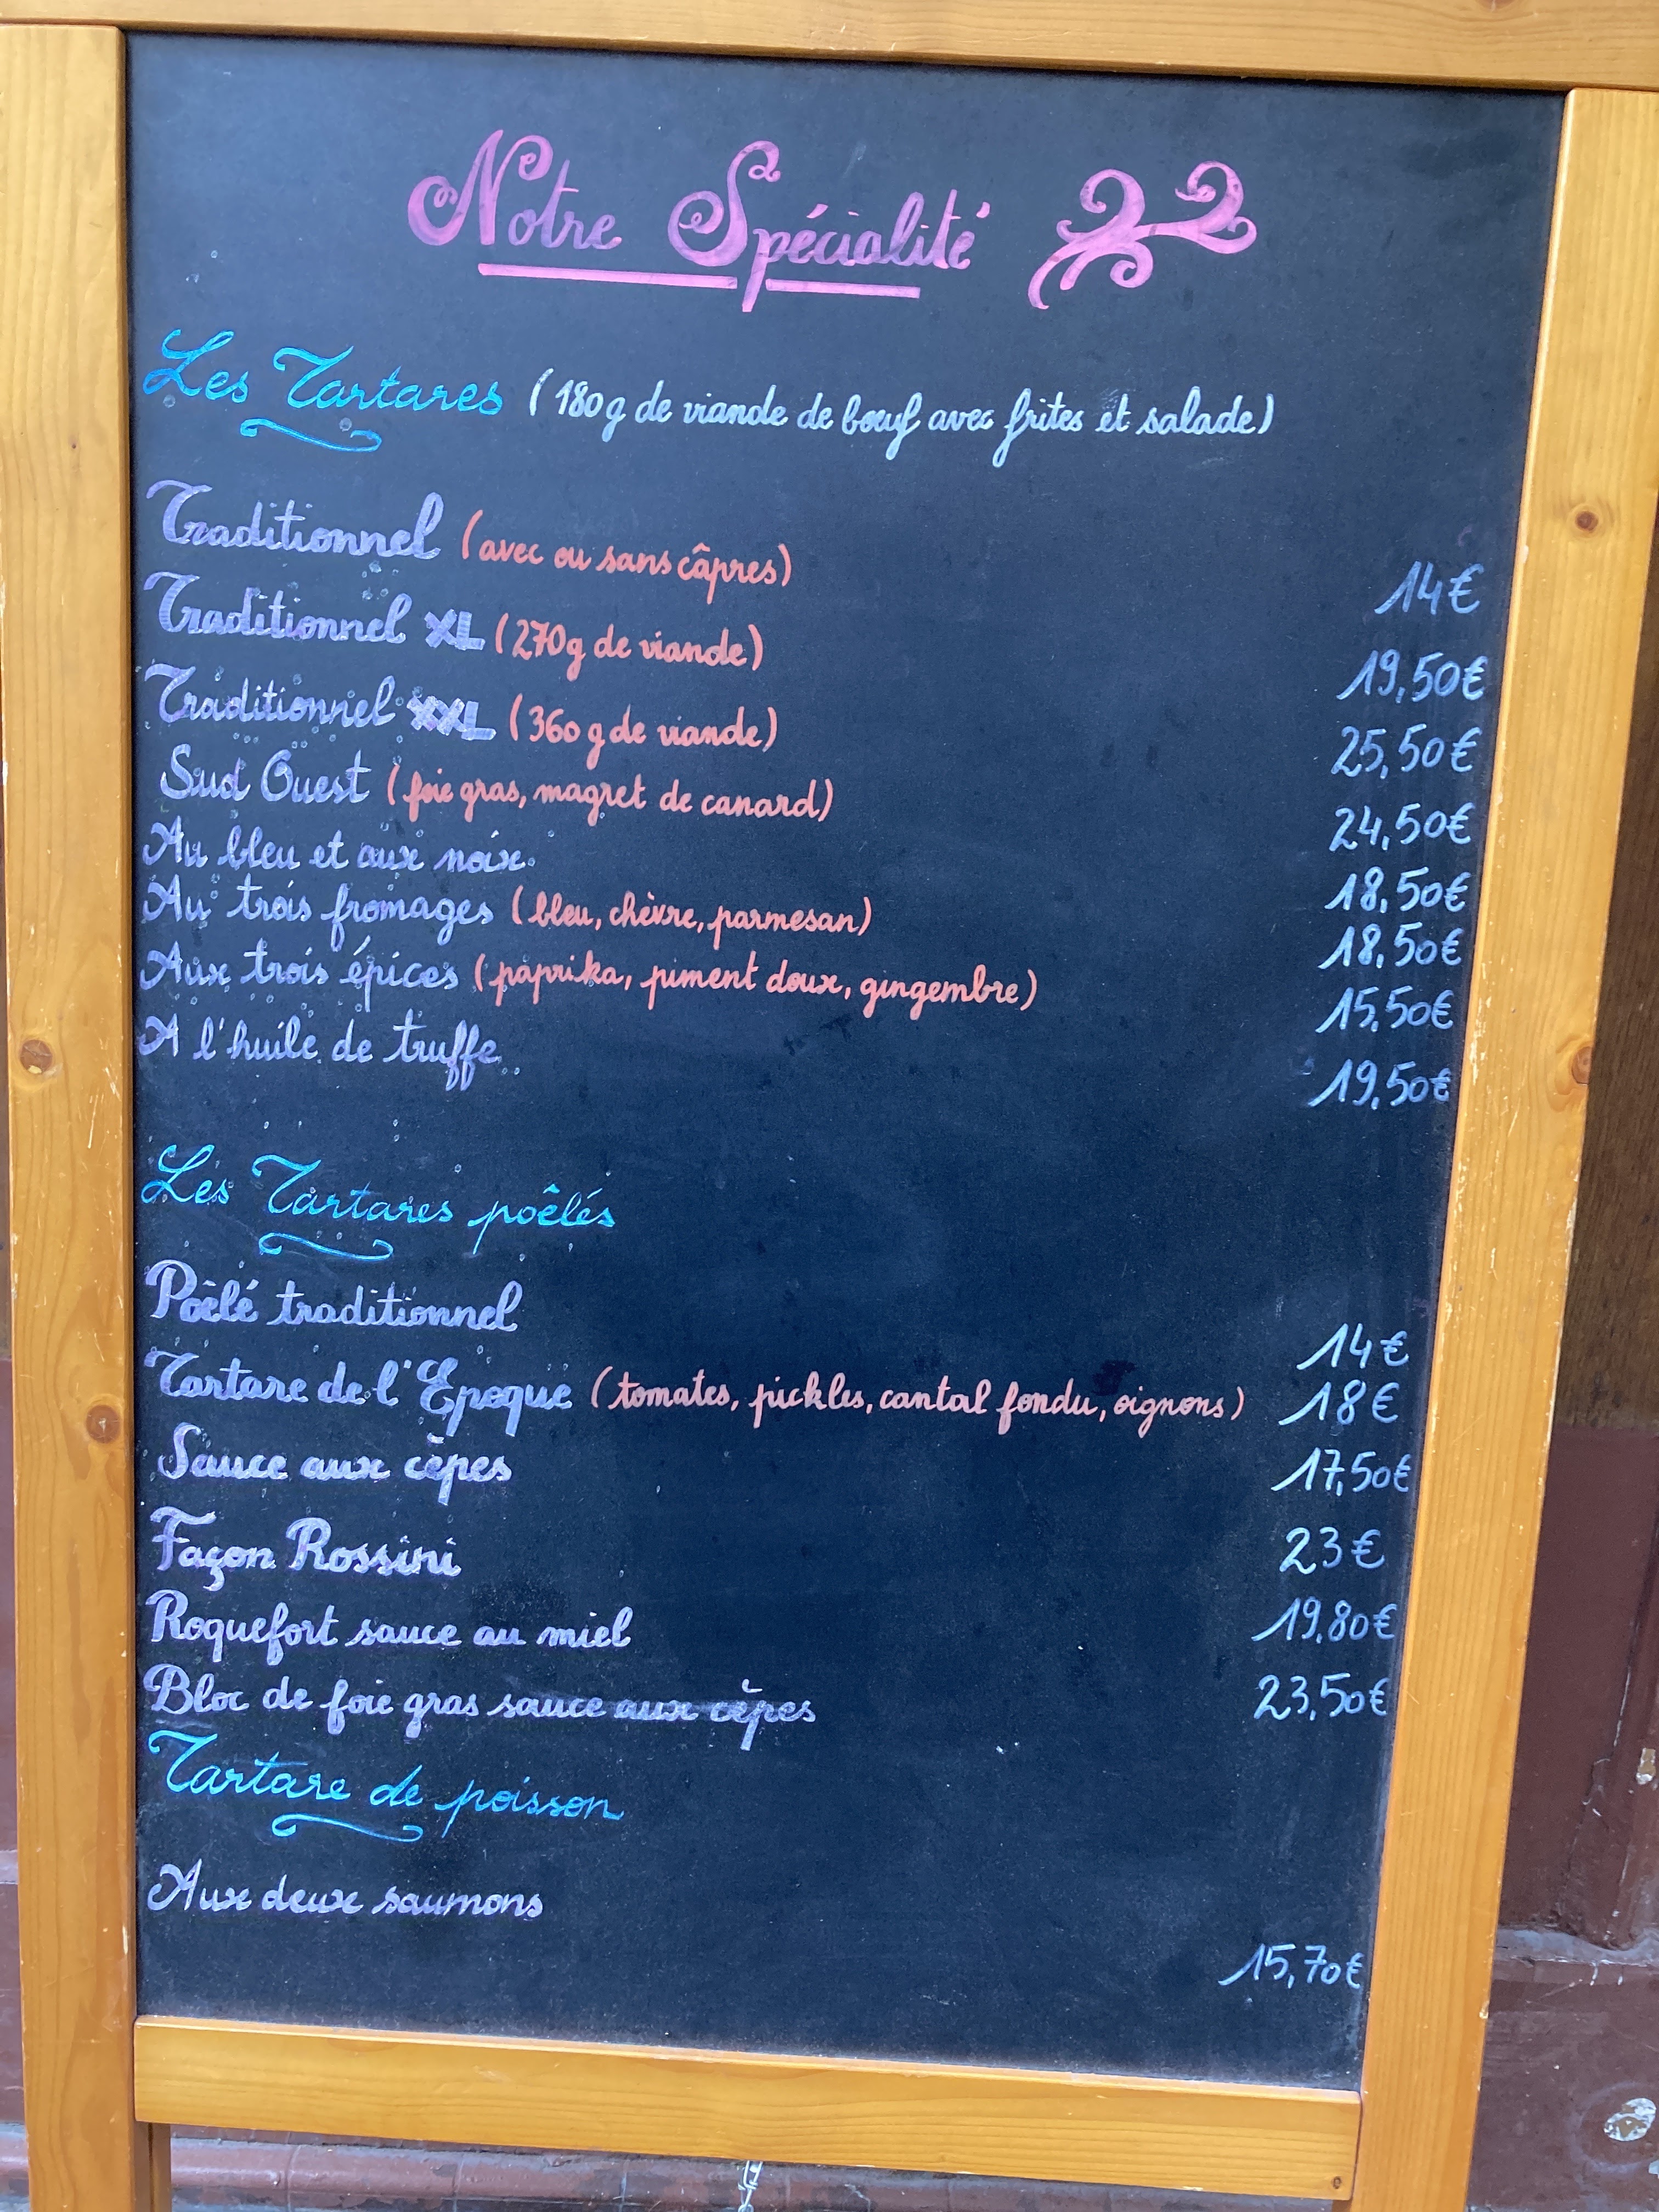 Notre Spécialité
Les Tartares (180g de viande de bœuf avec frites et salade)
Traditionnel (avec ou sans câpres) 14€
Traditionnel XL (270g de viande) 19,50€
Traditionnel XXL (360g de viande) 25,50€
Sud Ouest (foie gras, magret de canard) 24,50€
Au bleu et aux noix 18,50€
Au trois fromages (bleu, chèvre, parmesan) 18,50€
Aux trois épices (paprika, piment doux, gingembre) 15,50€
A l'huile de truffe 19,50€
Les Tartares poêlés
Poêlé traditionnel 14€
Tartare de l'Epoque (tomates, pickles, cantal fondu, oignons) 18€
Sauce aux cèpes 17,50€
Façon Rossini 23€
Roquefort sauce au miel 19,80€
Bloc de foie gras sauce aux cèpes 23,50€
Tartare de poisson
Aux deux saumons 15,70€